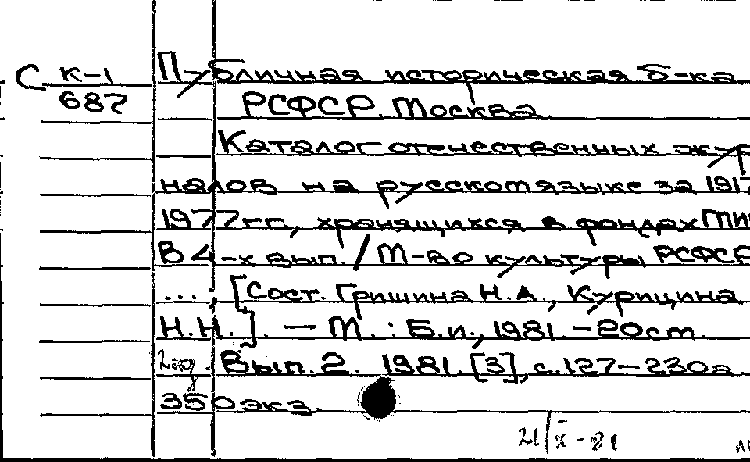 С К-1 Публичная историческая б-ка
687 РСФСР. Москва.
Каталог отечественных жур
налов на русском языке за 1917
1977 гг., хранящихся в фондах ГПИ
В 4-х вып. / М-во культуры РСФСР
... [Сост. Гришина Н.А., Курицина
Н.Н.]. — М.: Б.и., 1981. - 20 см.
2 экз. Вып. 2. 1981. [3], с. 127-230
350 экз.
21/X - 81